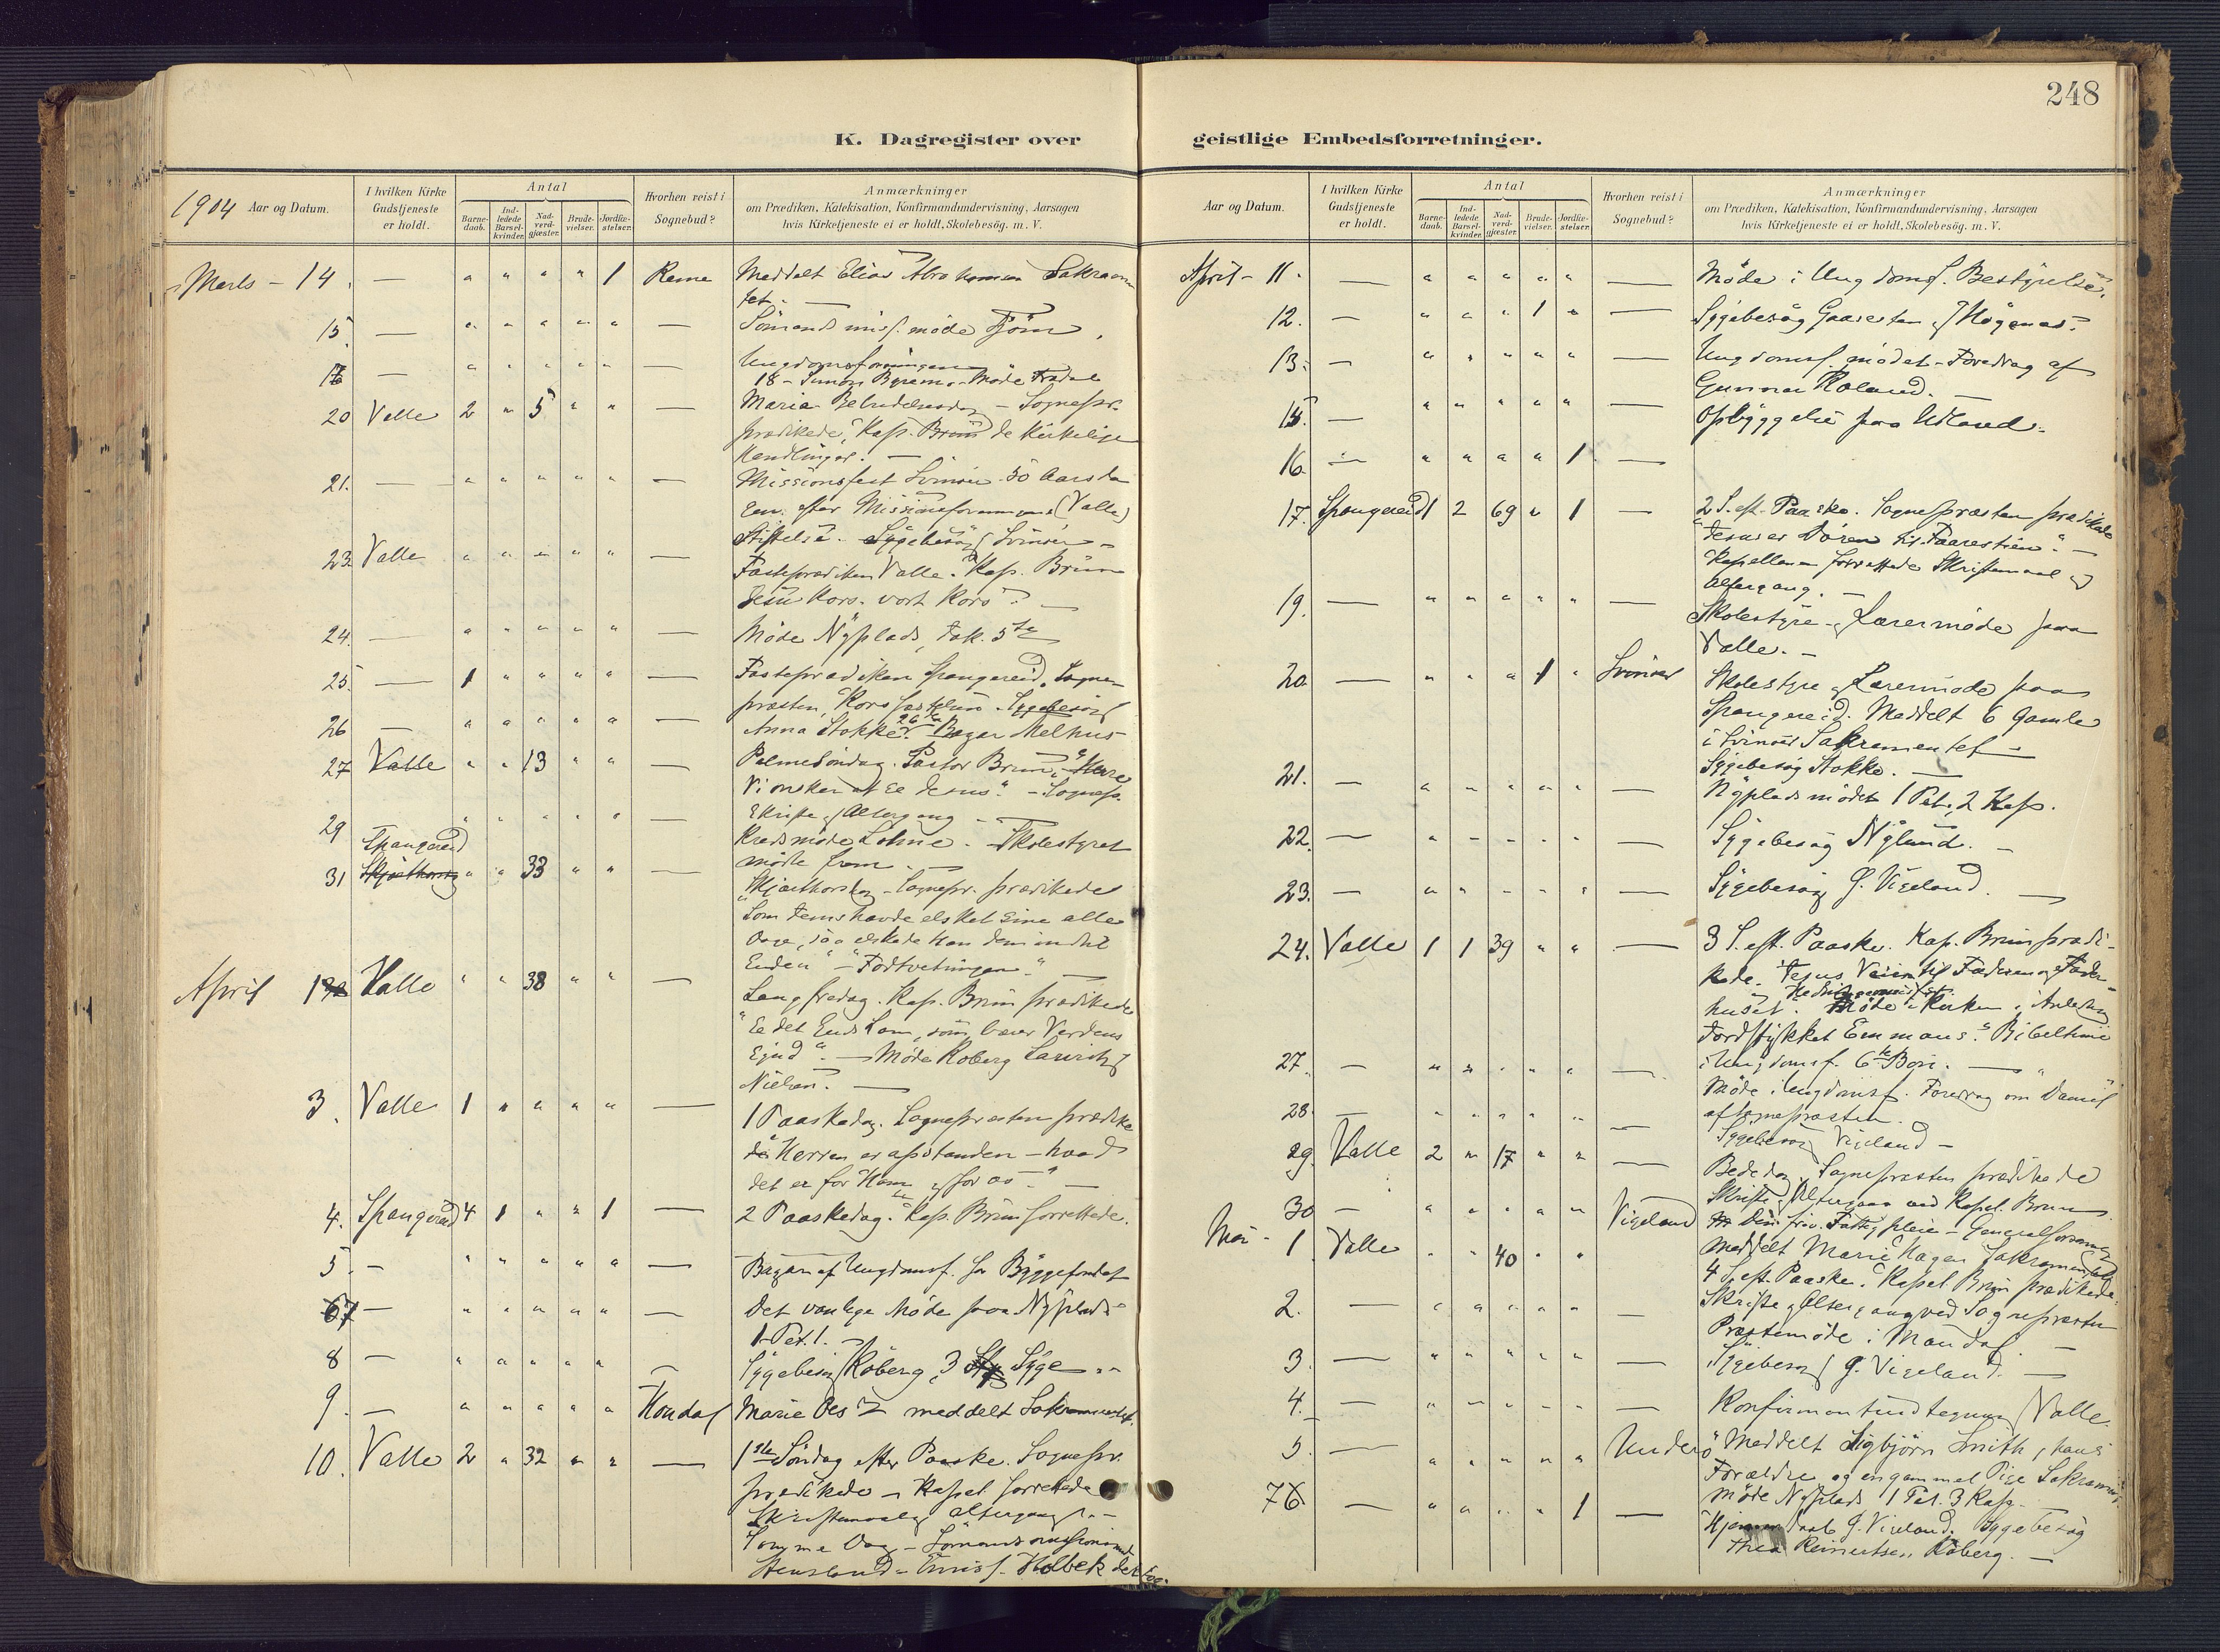 248
K. Dagregister over
geistlige Embedsforretninger.
1904 Aar og Datum.
I hvilken Kirke Gudstjeneste er holdt.
Antal
Barne-daab.
Ind-ledede Barsel-kvinder.
Nad-verd-gjæster.
Brude-vielser.
Jordfæ-stelser.
Hvorhen reist i Sognebud?
Anmærkninger
om Prædiken, Katekisation, Konfirmandundervisning, Aarsagen
hvis Kirketjeneste ei er holdt, Skolebesög. m. V.
Marts - 14. — " " " " 1 Reme Meddelt Elias Abrahamsen Sakramen
tet. —
15. — " " " " " — Sömandsmiss. møde
— " " " " " — Ungdomsforeningen
18 - Simon Byremo - Møde
20 Valle 2 " 5 " " — Maria Bebudelsesdag - Sognepr.
prædikede, Kap. Brun de kirkelige
Handlinger. —
21. — " " " " " — Missionsfest Svinøer 50 Aars
efter Missionsforeningens (Valle)
Stiftelse. Sygebesøg Svinøer -
23. Valle " " " " " — Fasteprædiken Valle. Kap. Brun
Jesu Kors. vort Kors". —
24. — " " " " " — Møde Nyplads,
25. — 1 " " " " — Fasteprædiken Spangereid. Sogne-
præsten, Sygebesøg
26 — " " " " " — Anna Stokke. Melhus
27 Valle " " 13 " " — Palmesöndag. Pastor Brun, "Herre
Vi ønsker at se Jesus." - Sognepr.
Skrifte og Altergang -
29 " " " " " — Kredsmøde Lohne. Skolestyret
mødte frem. —
Spangereid
31 Skjærthorsdag " " 33 " " — Skjærthorsdag - Sognepr. prædikede
"Som Jesus havde elsket sine alle
Dage, saa elskede han dem indtil
Enden" - "Fodtvetningen." —
April 1 Valle " " 38 " " — Langfredag. Kap. Brun prædikede
"Se det Guds Lam, som bærer Verdens
Synd". — Møde Koberg Lauritz
Nielsen. —
3. Valle 1 " " " " — 1 Paaskedag. Sognepræsten prædike
de "Herren er opstanden - hvad
det er for Ham og for os". —
4. Spangereid 4 1 " " 1 — 2 Paaskedag. Kap. Brun forrettede.
5. — " " " " " — Bazar af Ungdomsf. for Byggefondet
7 — " " " " " — Det vanlige Møde paa Nyplads
1 Pet. 1. —
8 — " " " " " — Sygebesøg Köberg, 3 Syge
9. — " " " " " Hondal Marie meddelt Sakramentet.
10. Valle 2 " 32 " " — 1ste Söndag efter Paaske. Sognepr.
prædikede - Kapel. forrettede
Skriftemaal og altergang. -
Samme Dag - Sömandsmissionsmøde
Aar og Datum.
I hvilken Kirke Gudstjeneste er holdt.
Antal
Barne-daab.
Ind-ledede Barsel-kvinder.
Nad-verd-gjæster.
Brude-vielser.
Jordfæ-stelser.
Hvorhen reist i Sognebud?
Anmærkninger
om Prædiken, Katekisation, Konfirmandundervisning, Aarsagen
hvis Kirketjeneste ei er holdt, Skolebesög. m. V.
April - 11. — " " " " " — Møde i Ungdomsf. Bestyrelse.
12. — " " " 1 " — Sygebesøg
13. — " " " " " — Ungdomsf. mødet - Foredrag af
Gunnar Roland. —
— " " " " " — Opbyggelse paa Udland.
16. — " " " " 1 —
17. Spangereid 1 2 69 " 1 — 2 S. eft. Paaske. Sognepræsten prædikede
"Jesus er Døren til Faarestien". —
Kapellanen forrettede Skriftemaal og
Altergang. —
19. — " " " " " — Skolestyre- og Lærermøde paa
Valle. —
20 — " " " 1 " Svinøer Skolestyre og Lærermøde paa
Spangereid. Meddelt 6 Gamle
i Svinøer Sakramentet -
Sygebesøg Stokke. —
21. — " " " " " — Nypladsmødet 1 Pet. 2 Kap.
22. — " " " " " — Sygebesøg Nylund. —
23. — " " " " " — Sygebesøg G. Vigeland. —
24. Valle 1 1 39 " " — 3 S. eft. Paaske. Kap. Brun prædi-
kede. Jesus Veien til Faderen og Fader-
huset. Møde i Kirken i
Emmaus". Bibeltime
i Ungdomsf. —
27. — " " " " " — Møde i Ungdomsf. Foredrag om Daniel
af Sognepræsten.
28. — " " " " " — Sygebesøg Vigeland -
29. Valle 2 " 17 " " — Bededag, Sognepræsten prædikede
Skrifte og Altergang ved Kapel. Brun.
Den friv. Fattigpleie - Generalforsamling
30 — " " " " " Vigeland Meddelt Marie Hagen Sakramentet
Mai - 1 Valle " " 40 " " 4 S. eft. Paaske. Kapel. Brun prædikede.
Skrifte og Altergang ved Sognepræsten
2. — " " " " " — Præstemøde i Mandal. —
3. — " " " " " — Sygebesøg G. Vigeland. —
4. — " " " " " — Konfirmantindtegning Valle.
5. — " " " " " Underø Meddelt Sigbjørn Smith, hans
Forældre og en gammel Pige Sakrament.
Møde Nyplads 1 Pet. 3 Kap.
— " " " " 1 — Hjemmedaab G. Vigeland. Sygebesøg
Thea Reinertsen Röberg. —